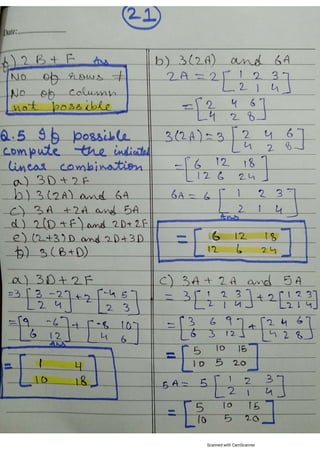 21
Date:
f) 2B + F Ans
No of rows ≠
No of column
not possible
Q.5 If possible
compute the indicated
linear combination
a) 3D + 2F
b) 3(2A) and 6A
c) 3A + 2A and 5A
d) 2(D + F) and 2D + 2F
e) (2+3)D and 2D + 3D
f) 3(B + D)
a) 3D + 2F
= 3 [3 -2 + 2 [-4 5
2 4] 2 3]
= [9 -6 + [-8 10
6 12] 4 6]
Ans
= [1 4
10 18]
b) 3(2A) and 6A
2A = 2 [1 2 3
2 1 4]
= [2 4 6
4 2 8]
3(2A) = 3 [2 4 6
4 2 8]
= [6 12 18
12 6 24]
6A = 6 [1 2 3
2 1 4]
Ans
= [6 12 18
12 6 24]
c) 3A + 2A and 5A
= 3 [1 2 3 + 2 [1 2 3
2 1 4] 2 1 4]
= [3 6 9 + [2 4 6
6 3 12] 4 2 8]
= [5 10 15
10 5 20]
5A = 5 [1 2 3
2 1 4]
= [5 10 15
10 5 20]
Scanned with CamScanner